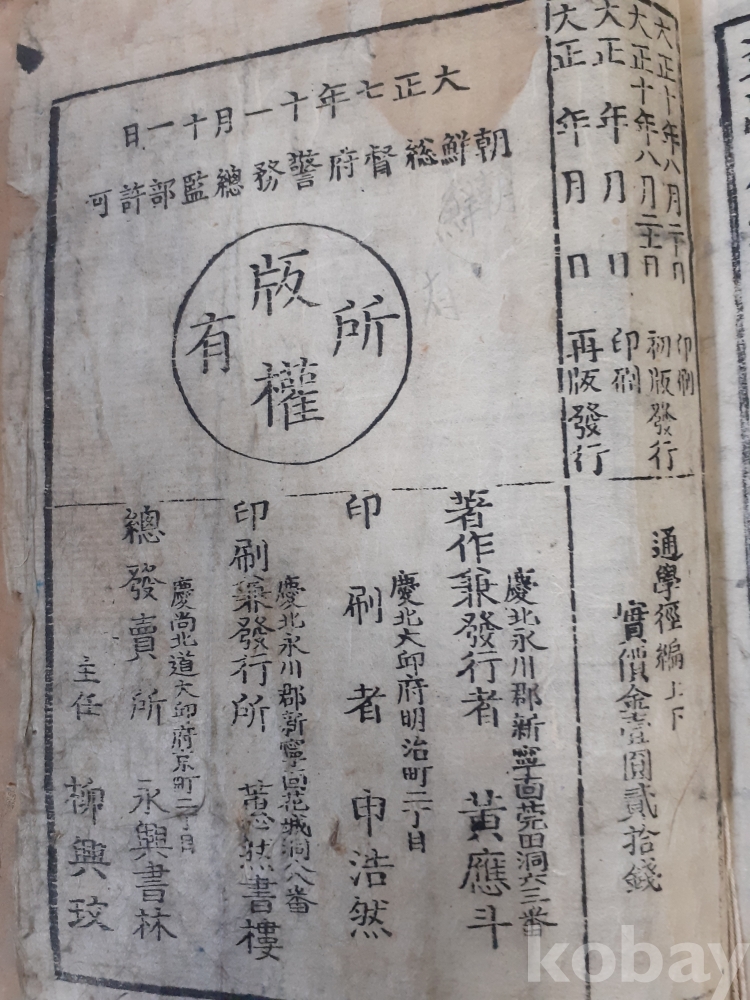 大正十年八月二十日 印刷
大正十年八月二十五日 初版發行
大正 年 月 日 印刷
大正 年 月 日 再版發行
通學徑編上下
實價金壹圓貳拾錢
大正七年十一月十一日
朝鮮総督府警務總監部許可
版權所有
慶北永川郡新寧面莞田洞六三番
著作兼發行者 黃應斗
慶北大邱府明治町二丁目
印刷者 申浩然
慶北永川郡新寧面花城洞八番
印刷兼發行所 然書樓
慶尚北道大邱府京町二丁目
總發賣所 永興書林
主任 柳興玟
kobay